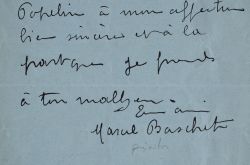 Popelin à mon affection
bien sincère et à la
part que je prends
à ton malheur
Ton ami
Marcel Baschet